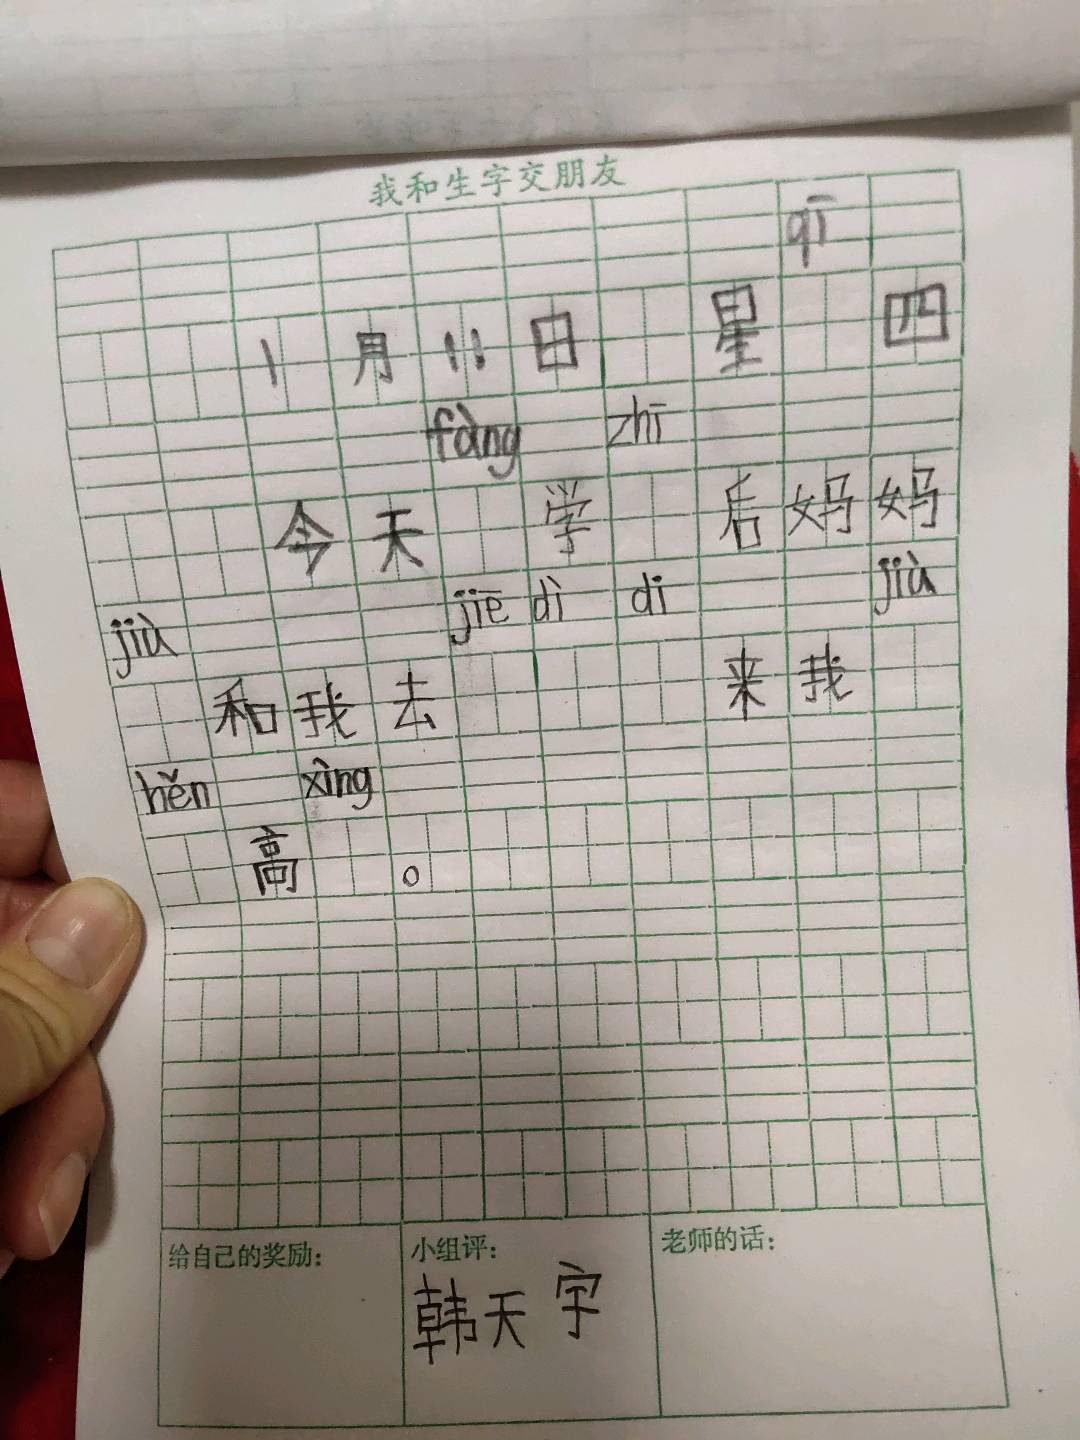 我和生字交朋友
qī
1月11日 星 四
fàng zhī
今天 学 后妈妈
jiù jiē dì di jiù
和我去 来我
hěn xìng
高 。
给自己的奖励:
小组评:
老师的话:
韩天宇